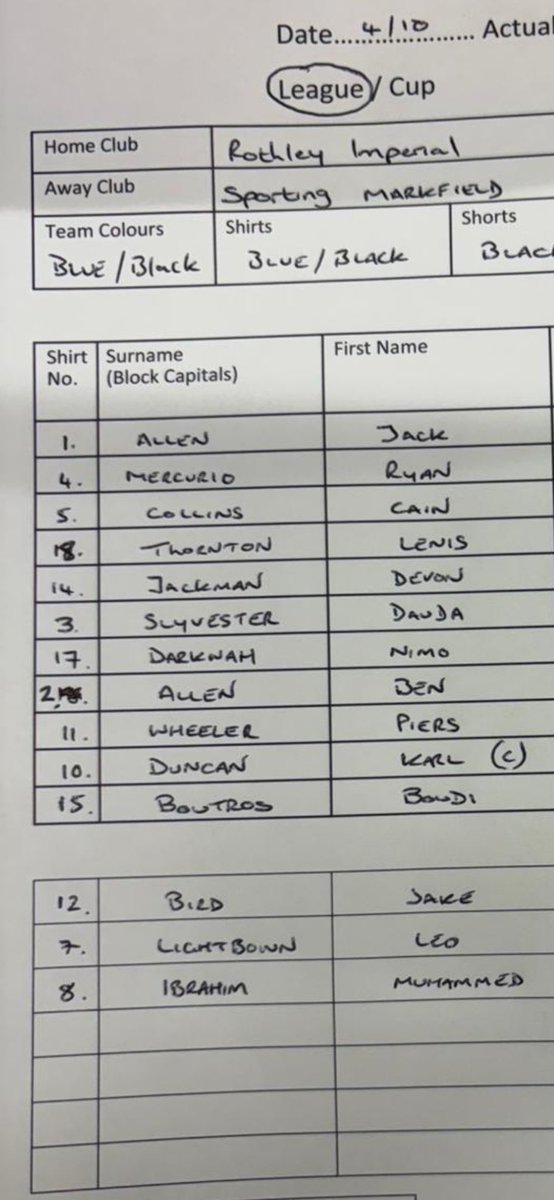 Date.....4/10............ Actual
League / Cup
Home Club Rothley Imperial
Away Club Sporting MARKFIELD
Team Colours Shirts Shorts
BLUE/Black BLUE/BLACK BLAC
Shirt No. Surname (Block Capitals) First Name
1. ALLEN Jack
4. MERCURIO RYAN
5. COLLINS CAIN
18. THORNTON LEWIS
14. JACKMAN DEVON
3. SLYVESTER DAUDA
17. DARKWAH NIMO
2. ALLEN BEN
11. WHEELER PIERS
10. DUNCAN KARL (C)
15. BOUTROS BOUDI
12. BIRD JAKE
7. LIGHTBOWN LEO
8. IBRAHIM MUHAMMED